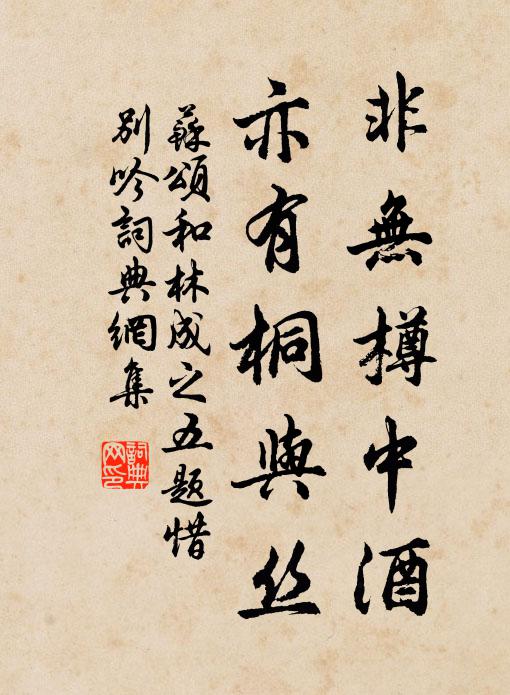 非無樽中酒
亦有桐與丝
蘇頌和林成之五题惜
别吟詞典網集
詞典
网印